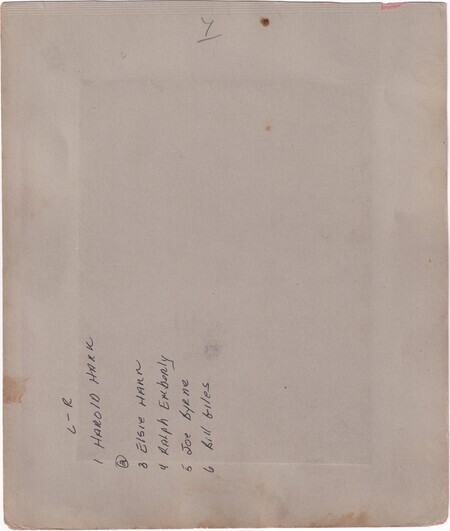 L-R
1 HAROLD HANN
②
3 Elsie HANN
4 Ralph Emberly
5 Joe Byrne
6 Bill Giles